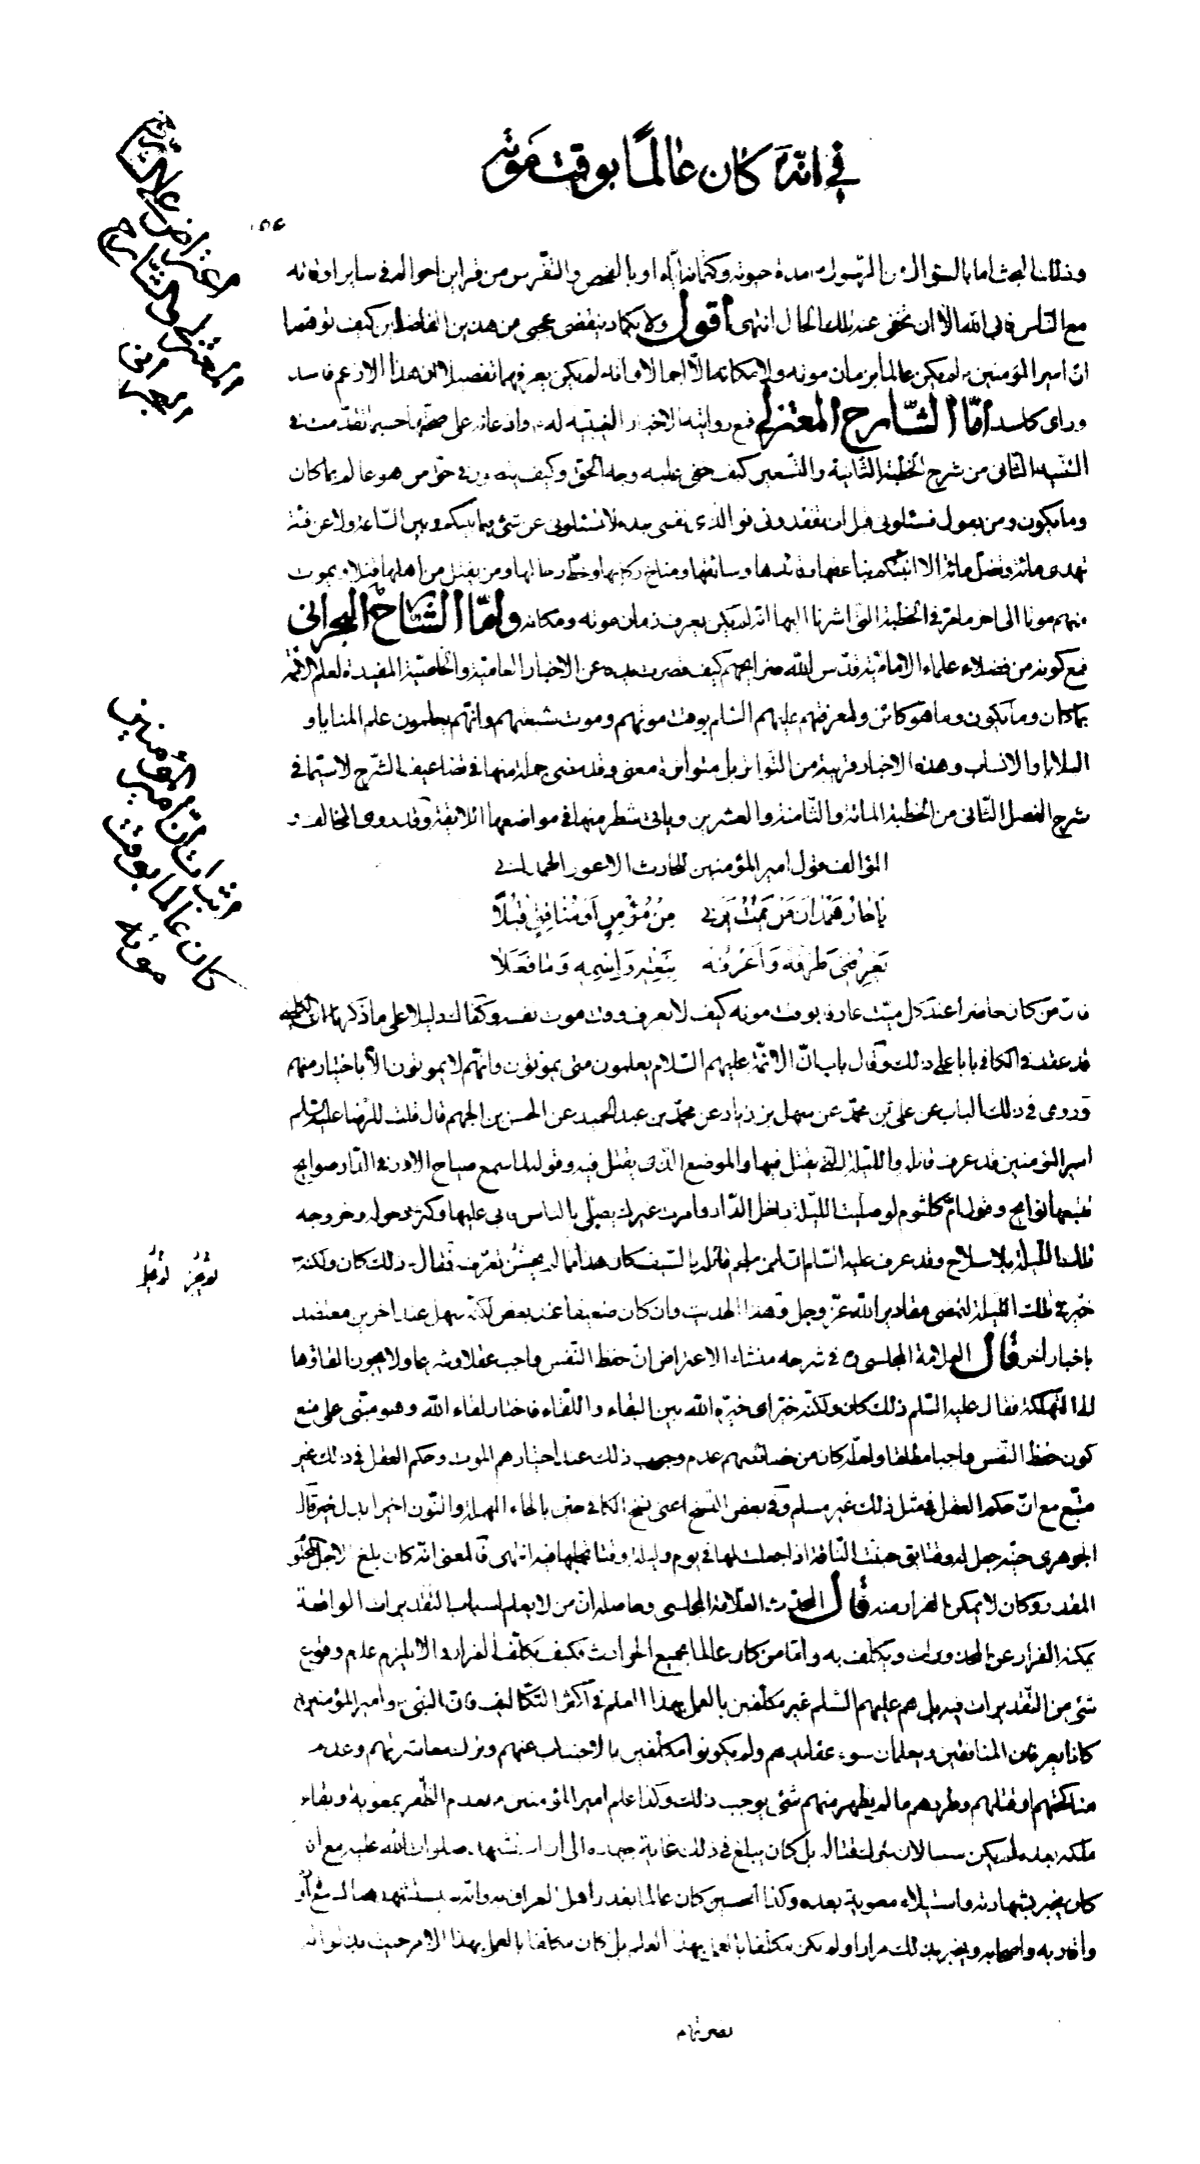 في انّه كان عالمًا بوقت موته
اعتراض على
المعتزلي والشارح
البحراني
وذلك البحث اما بالسؤال من الرسول مدة حيوته وكتمانه اياه او بالفحص والتفرس من قراين احواله في ساير اوقاته
مع الناس فابى الله الا ان تخفى عنه تلك الحال انتهى أقول ولا يكاد ينقضي عجبي من هذين الفاضلين كيف توهّما
ان امير المؤمنين لم يكن عالما بزمان موته ولا مكانه الّا اجمالا وانه لم يكن يعرفهما تفصيلا ان هذا الا زعم فاسد
وراى كاسد امّا الشّارح المعتزلي فمع روايته الاخبار الغيبية له واذعانه على صحّتها حسبما تقدّمت في
التنبيه الثاني من شرح الخطبة الثانية والتسعين كيف خفى عليه وجه الحق وكيف يتصور في حق من هو عالم بما كان
وما يكون ومن يقول فسئلوني قبل ان تفقدوني فو الذي نفسي بيده لا تسئلوني عن شئ فيما بينكم وبين السّاعة ولا عن فئة
تهدى مائة وتضلّ مائة الا انبئتكم بناعقها وقائدها وسائقها ومناخ ركابها ومحطّ رحالها ومن يقتل من اهلها قتلا ويموت
منهم موتا الى اخر ما مرّ في الخطبة التى اشرنا اليها انه لم يكن يعرف زمان موته ومكانه وامّا الشّارح البحراني
فمع كونه من فضلاء علماء الاماميّة قدّس الله ضرايحهم كيف قصرت يده عن الاخبار العاميّة والخاصيّة المفيدة لعلم الائمّة
بما كان وما يكون وما هو كائن ولمعرفتهم عليهم السّلم بوقت موتهم وموت شيعتهم وانّهم يعلمون علم المنايا و
البلايا والانساب وهذه الاخبار قريبة من التّواتر بل متواترة معنى وقد مضى جملة منها في تضاعيف الشّرح لا سيّما في
شرح الفصل الثّاني من الخطبة المائة والثّامنة والعشرين وياتى شطر منها في مواضعها اللائقة وقد روى المخالف و
المؤالف قول امير المؤمنين للحارث الاعور الهمداني
يا حار همدان من يمت يرني من مؤمن او منافق قبلًا
يعرفني طرفه واعرفه بنعته واسمه وما فعلا
اثبات انّ امير المؤمنين
كان عالما بوقت
موته
فانّ من كان حاضرا عند كلّ ميّت عارفا بوقت موته كيف لا يعرف وقت موت نفسه وكفاك دليلا على ما ذكرنا ان الكليني
قد عقد في الكافي بابا على ذلك وقال باب انّ الائمّة عليهم السّلام يعلمون متى يموتون وانّهم لا يموتون الّا باختيار منهم
وروى في ذلك الباب عن علي بن محمّد عن سهل بن زياد عن محمّد بن عبد الحميد عن الحسن بن الجهم قال قلت للرّضا عليه السّلم
امير المؤمنين قد عرف قاتله والليلة التي يقتل فيها والموضع الذي يقتل فيه وقوله لما سمع صياح الاوز في الدّار صوايح
تتبعها نوايح وقول امّ كلثوم لو صليت الليلة داخل الدّار وامرت غيرك يصلّي بالناس فابى عليها وكثر دخوله وخروجه
تلك الليلة بلا سلاح وقد عرف عليه السّلم انّ ابن ملجم قاتله بالسّيف كان هذا ممّا لم يحسن تعرّضه فقال ذلك كان ولكنّه
خيّر في تلك الليلة لتمضى مقادير الله عزّ وجل وهذا الحديث وان كان ضعيفا عند بعض لكنّه سهل عند اخرين معتضد
باخبار اخر قال العلامة المجلسى ره في شرحه منشاء الاعتراض انّ حفظ النّفس واجب عقلا وشرعا ولا يجوز القاؤها
الى التّهلكة فقال عليه السّلم ذلك كان ولكنّه خيّر اى خيّره الله بين البقاء واللّقاء فاختار لقاء الله وهو مبنّى على منع
كون حفظ النّفس واجبا مطلقا ولعلّه كان من خصائصهم عدم وجوب ذلك عند اختيارهم الموت وحكم العقل في ذلك غير
متّبع مع انّ حكم العقل في مثل ذلك غير مسلم وفي بعض النّسخ اعنى نسخ الكافي حيّن بالحاء المهملة والنّون اخيرا بدل خيّر قال
الجوهرى حيّنه جعل له وقتا يق حيّنت النّاقة اذا جعلت لها في يوم وليلة وقتا تحلبها فيه انتهى فالمعنى انّه كان بلغ الاجل المحتوم
المقدر وكان لا يمكن الفرار منه قال المحدّث العلّامة المجلسى وحاصله انّ من لا يعلم اسباب التقديرات الواقعة
يمكنه الفرار عن المحذورات ويكلّف به وامّا من كان عالما بجميع الحوادث فكيف يكلّف الفرار والا يلزم عدم وقوع
شئ من التّقديرات فيه بل هم عليهم السّلم غير مكلّفين بالعمل بهذا العلم في اكثر التكاليف فانّ النبى وامير المؤمنين
كانا يعرفان المنافقين ويعلمان سوء عقايدهم ولم يكونوا مكلّفين بالاجتناب عنهم وترك معاشرتهم وعدم
مناكحتهم او قتلهم وطردهم ما لم يظهر منهم شئ يوجب ذلك وكذا علم امير المؤمنين بعدم الظّفر بمعوية وبقاء
ملكه بعده لم يكن سببا لان يترك قتاله بل كان يبلغ في ذلك غاية جهده الى ان استشهد صلوات الله عليه مع ان
كان يخبر بشهادته واستيلاء معوية بعده وكذا الحسين كان عالما بغدر اهل العراق به وانّه يستشهد هناك مع اولاده
واقاربه واصحابه ويخبر بذلك مرارا ولم يكن مكلّفا بالعمل بهذا العلم بل كان مكلّفا بالعمل بهذا الامر حيث بذلوا